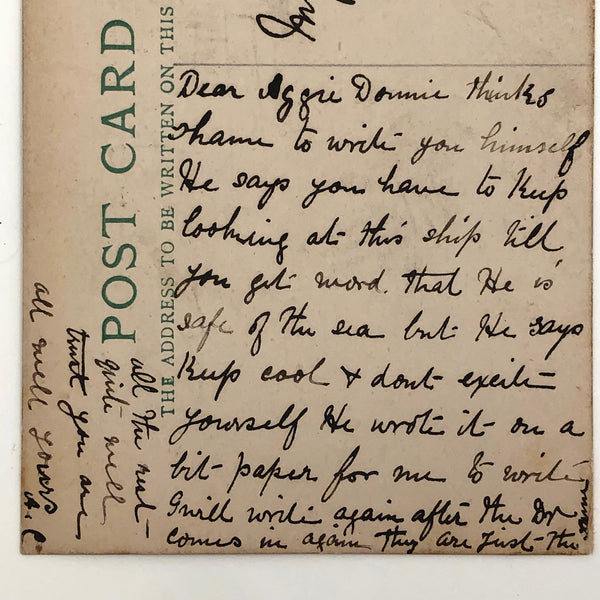 POST CARD
THE ADDRESS TO BE WRITTEN ON THIS
Dear Aggie Donnie thinks
shame to write you himself
He says you have to Keep
looking at this ship till
you get word. that He is
safe of the sea but He says
Keep cool & dont excite
yourself He wrote it on a
bit paper for me to write
I will write again after the Dr
comes in again They are just the
same
all the rest
quite well
trust you are
all well yours
A. C